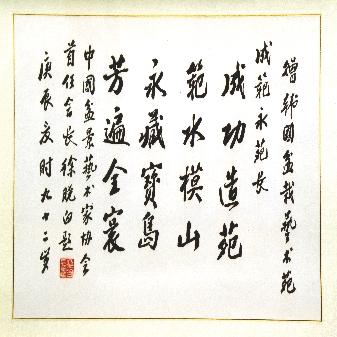 赠韩国盆栽艺术苑
成範永苑长
成功造苑
範水模山
永藏寶島
芳遍全寰
中国盆景藝术家协会
首任会长徐晓白题
庚辰夏时九十二岁